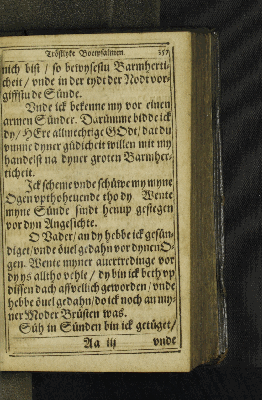 Tröstlyke Boetpsalmen.
mich bist / so bewysestu Barmherti-
cheit / vnde in der tydt der Nodt vor-
giffstu de Sünde.
Vnde ick bekenne my vor einen
armen Sünder. Darümme bidde ick
dy / HEre allmechtige GOdt / dat du
vmme dyner güdicheit willen mit my
handelst na dyner groten Barmher-
ticheit.
Ick scheme vnde schüwe my myne
Ogen vpthoheuende tho dy Wente
myne Sünde sindt henup gestegen
vor dyn Angesichte.
O Vader / an dy hebbe ick gesün-
diget / vnde öuel gedahn vor dynen O-
gen. Wente myner auertredinge vor
dy ys alltho vehle / dy bin ick beth vp
dissen dach affvellich geworden / vnde
hebbe öuel gedahn / do ick noch an my-
ner Moder Brüsten was.
Süh in Sünden bin ick getüget /
Aa iij vnde